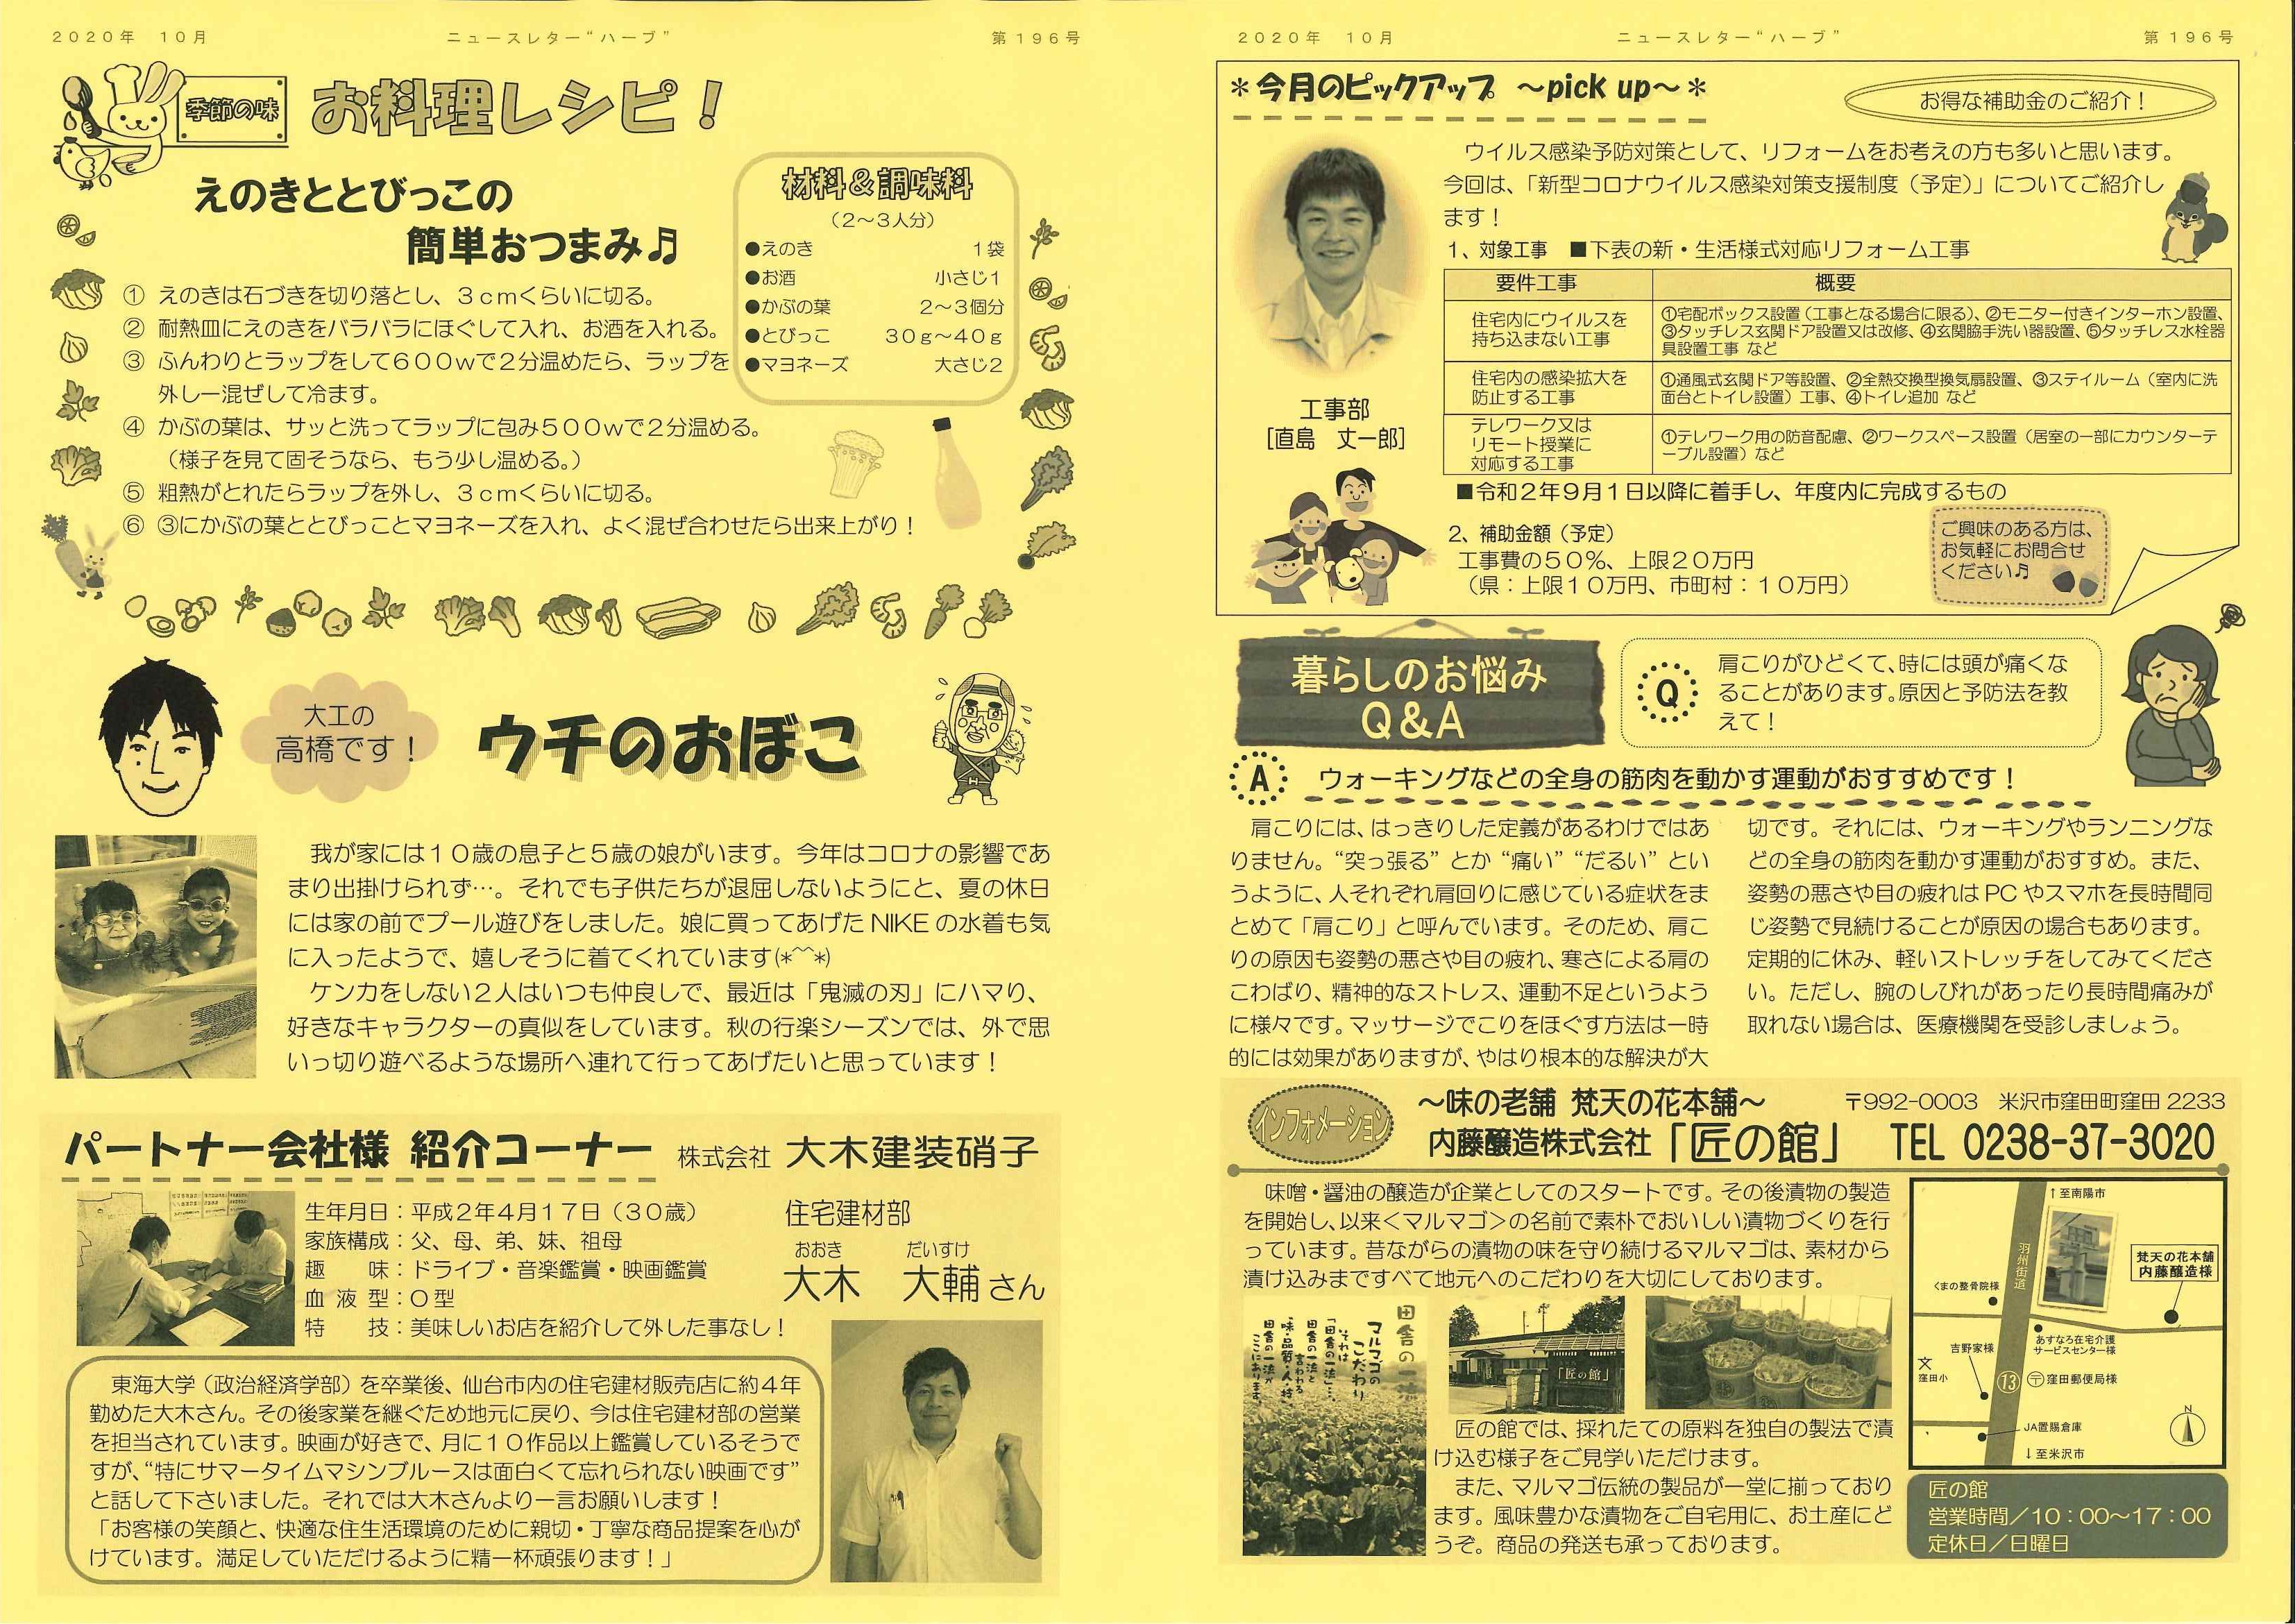 2020年 10月
ニュースレター“ハーブ”
第196号
季節の味
お料理レシピ！
えのきととびっこの
簡単おつまみ♫
材料＆調味料
（2～3人分）
●えのき 1袋
●お酒 小さじ1
●かぶの葉 2～3個分
●とびっこ 30g～40g
●マヨネーズ 大さじ2
① えのきは石づきを切り落とし、3cmくらいに切る。
② 耐熱皿にえのきをバラバラにほぐして入れ、お酒を入れる。
③ ふんわりとラップをして600wで2分温めたら、ラップを
外し一混ぜして冷ます。
④ かぶの葉は、サッと洗ってラップに包み500wで2分温める。
（様子を見て固そうなら、もう少し温める。）
⑤ 粗熱がとれたらラップを外し、3cmくらいに切る。
⑥ ③にかぶの葉ととびっことマヨネーズを入れ、よく混ぜ合わせたら出来上がり！
大工の
高橋です！
ウチのおぼこ
我が家には10歳の息子と5歳の娘がいます。今年はコロナの影響であ
まり出掛けられず…。それでも子供たちが退屈しないようにと、夏の休日
には家の前でプール遊びをしました。娘に買ってあげたNIKEの水着も気
に入ったようで、嬉しそうに着てくれています(*^^*)
ケンカをしない2人はいつも仲良しで、最近は「鬼滅の刃」にハマり、
好きなキャラクターの真似をしています。秋の行楽シーズンでは、外で思
いっ切り遊べるような場所へ連れて行ってあげたいと思っています！
パートナー会社様 紹介コーナー
株式会社 大木建装硝子
生年月日：平成2年4月17日（30歳）
家族構成：父、母、弟、妹、祖母
趣　　味：ドライブ・音楽鑑賞・映画鑑賞
血 液 型：O型
特　　技：美味しいお店を紹介して外した事なし！
住宅建材部
おおき だいすけ
大木 大輔さん
東海大学（政治経済学部）を卒業後、仙台市内の住宅建材販売店に約4年
勤めた大木さん。その後家業を継ぐため地元に戻り、今は住宅建材部の営業
を担当されています。映画が好きで、月に10作品以上鑑賞しているそうで
すが、“特にサマータイムマシンブルースは面白くて忘れられない映画です”
と話して下さいました。それでは大木さんより一言お願いします！
「お客様の笑顔と、快適な住生活環境のために親切・丁寧な商品提案を心が
けています。満足していただけるように精一杯頑張ります！」
2020年 10月
ニュースレター“ハーブ”
第196号
＊今月のピックアップ ～pick up～＊
お得な補助金のご紹介！
ウイルス感染予防対策として、リフォームをお考えの方も多いと思います。
今回は、「新型コロナウイルス感染対策支援制度（予定）」についてご紹介し
ます！
工事部
[直島 丈一郎]
1、対象工事 ■下表の新・生活様式対応リフォーム工事
要件工事 概要
住宅内にウイルスを
持ち込まない工事
①宅配ボックス設置（工事となる場合に限る）、②モニター付きインターホン設置、
③タッチレス玄関ドア設置又は改修、④玄関脇手洗い器設置、⑤タッチレス水栓器
具設置工事 など
住宅内の感染拡大を
防止する工事
①通風式玄関ドア等設置、②全熱交換型換気扇設置、③ステイルーム（室内に洗
面台とトイレ設置）工事、④トイレ追加 など
テレワーク又は
リモート授業に
対応する工事
①テレワーク用の防音配慮、②ワークスペース設置（居室の一部にカウンターテ
ーブル設置）など
■令和2年9月1日以降に着手し、年度内に完成するもの
2、補助金額（予定）
工事費の50%、上限20万円
（県：上限10万円、市町村：10万円）
ご興味のある方は、
お気軽にお問合せ
ください♫
暮らしのお悩み
Q&A
Q
肩こりがひどくて、時には頭が痛くな
ることがあります。原因と予防法を教
えて！
A ウォーキングなどの全身の筋肉を動かす運動がおすすめです！
肩こりには、はっきりした定義があるわけではあ
りません。“突っ張る”とか“痛い”“だるい”とい
うように、人それぞれ肩回りに感じている症状をま
とめて「肩こり」と呼んでいます。そのため、肩こ
りの原因も姿勢の悪さや目の疲れ、寒さによる肩の
こわばり、精神的なストレス、運動不足というよう
に様々です。マッサージでこりをほぐす方法は一時
的には効果がありますが、やはり根本的な解決が大
切です。それには、ウォーキングやランニングな
どの全身の筋肉を動かす運動がおすすめ。また、
姿勢の悪さや目の疲れはPCやスマホを長時間同
じ姿勢で見続けることが原因の場合もあります。
定期的に休み、軽いストレッチをしてみてくださ
い。ただし、腕のしびれがあったり長時間痛みが
取れない場合は、医療機関を受診しましょう。
インフォメーション
～味の老舗 梵天の花本舗～
〒992-0003 米沢市窪田町窪田2233
内藤醸造株式会社「匠の館」 TEL 0238-37-3020
味噌・醤油の醸造が企業としてのスタートです。その後漬物の製造
を開始し、以来＜マルマゴ＞の名前で素朴でおいしい漬物づくりを行
っています。昔ながらの漬物の味を守り続けるマルマゴは、素材から
漬け込みまですべて地元へのこだわりを大切にしております。
田舎の一流
マルマゴの
こだわり
それは
「田舎の一流」…
田舎の一流と
言われる
味・品質・人・技
田舎の一流が
ここにあります
「匠の館」
匠の館では、採れたての原料を独自の製法で漬
け込む様子をご見学いただけます。
また、マルマゴ伝統の製品が一堂に揃っており
ます。風味豊かな漬物をご自宅用に、お土産にど
うぞ。商品の発送も承っております。
↑至南陽市
羽州街道
梵天の花本舗
内藤醸造様
くまの整骨院様
あすなろ在宅介護
サービスセンター様
吉野家様
文
窪田小
13
〒窪田郵便局様
JA置賜倉庫
N
↓至米沢市
匠の館
営業時間／10：00～17：00
定休日／日曜日